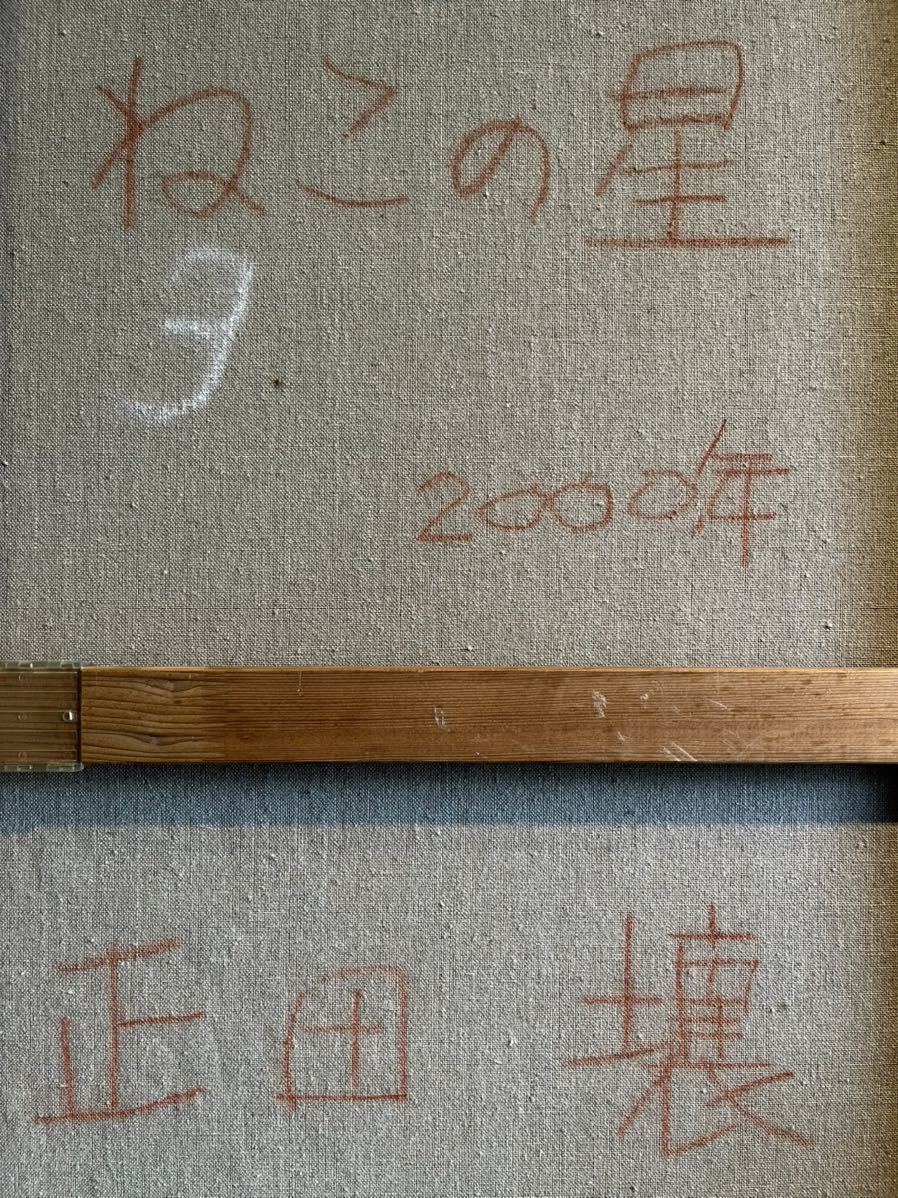 ねこの星
2000年
正田 壌